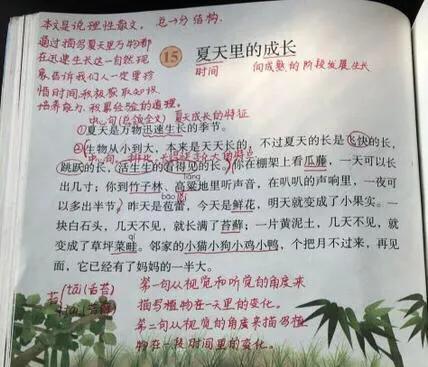 本文是说理性散文。总一分结构.
通过描写夏天里万物都
在迅速生长这一自然现
象告诉我们人一定要珍
惜时间,积极获取知识
培养能力.积累经验的道理。
15 夏天里的成长
时间 向成熟的阶段发展生长
中心句(总领全文) 夏天成长的特征
①夏天是万物迅速生长的季节。
②生物从小到大,本来是天天长的,不过夏天的长是飞快的长,
中心句
跳跃的长,活生生的看得见的长。你在棚架上看瓜藤,一天可以长
liáng
出几寸;你到竹子林、高粱地里听声音,在叭叭的声响里,一夜可
bāo lěi
以多出半节。昨天是苞蕾,今天是鲜花,明天就变成了小果实。一
块白石头,几天不见,就长满了苔藓;一片黄泥土,几天不见,就
qí
变成了草坪菜畦。邻家的小猫小狗小鸡小鸭,个把月不过来,再见
面,它已经有了妈妈的一半大。
苔 tāi(舌苔)
第一句从视觉和听觉的角度来
描写植物在一天里的变化。
第二句从视觉的角度来描写植
物在一段时间里的变化。